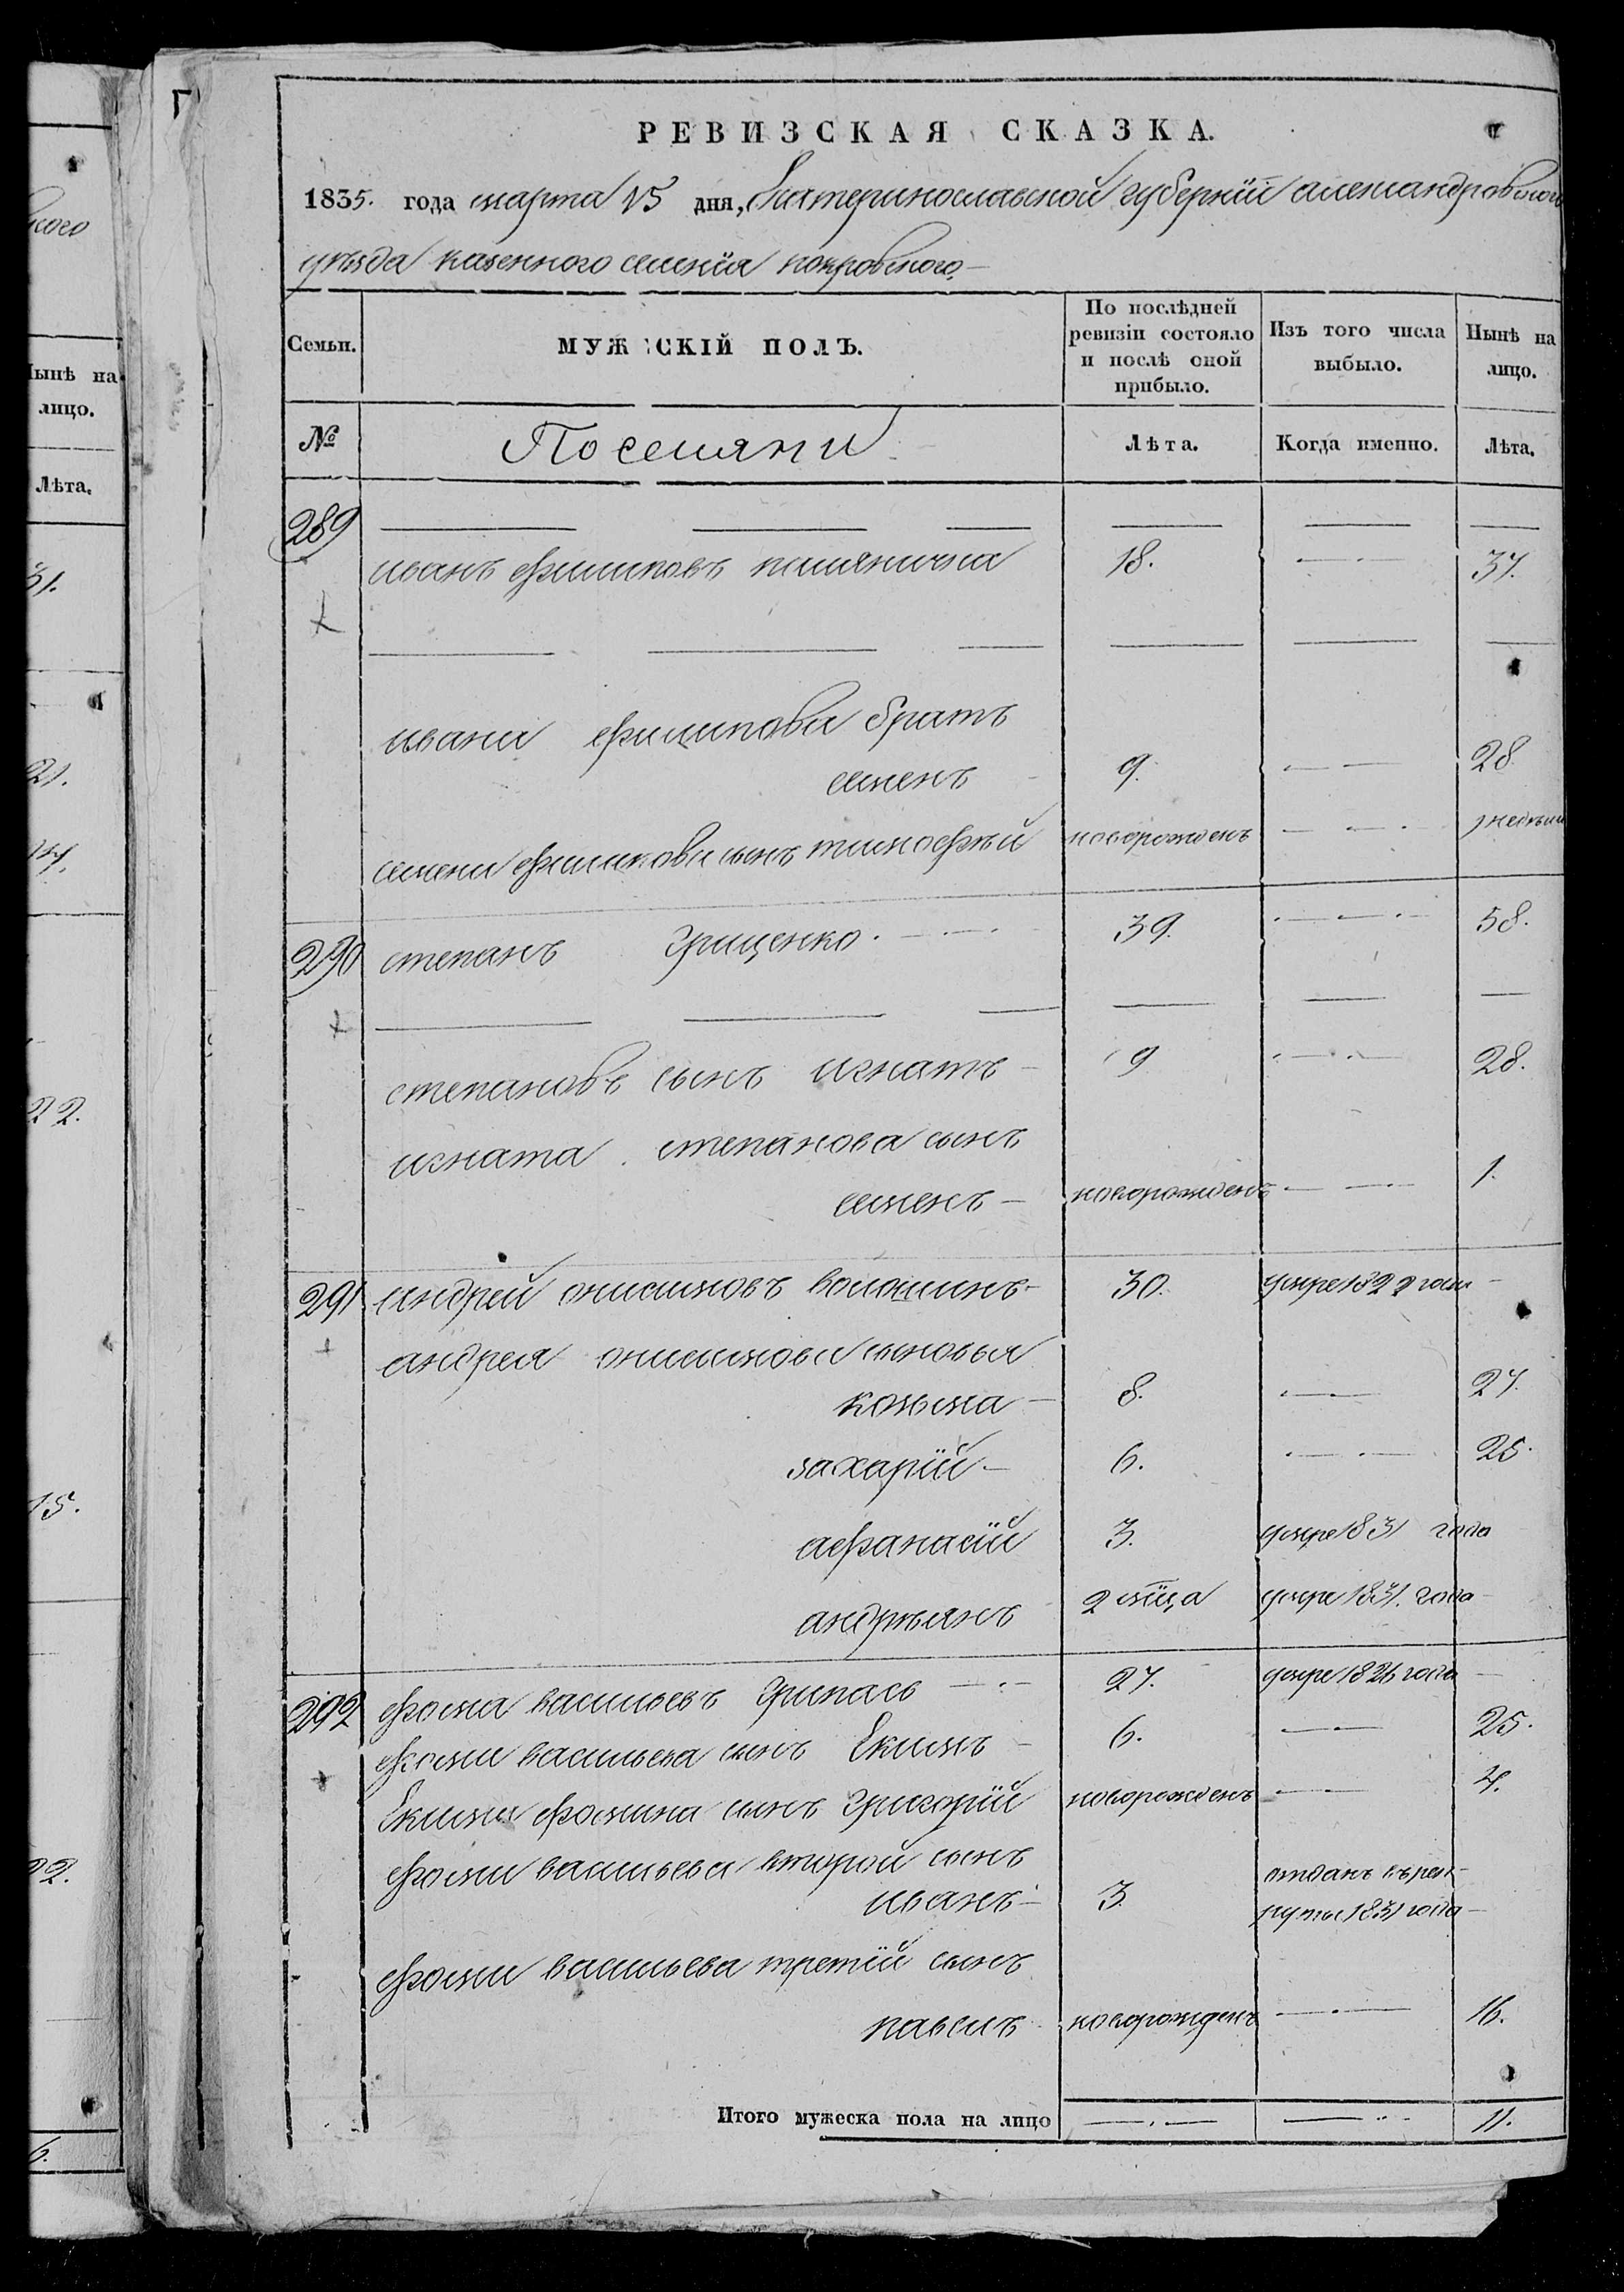 РЕВИЗСКАЯ СКАЗКА.
1835. года марта 15 дня, Екатеринославской губернїи александровского
уѣзда казенного селенїя покровского
Семьи.
МУЖЕСКІЙ ПОЛЪ.
По послѣдней ревизіи состояло и послѣ оной прибыло.
Изъ того числа выбыло.
Нынѣ на лицо.
№
Поселяни
Лѣта.
Когда именно.
Лѣта.
289
иванъ филиповъ 18. 37.
ивана филипова братъ
семенъ 9. 28
семена филипова сынъ тимофѣй новорожденъ
290 степанъ Грищенко. 39. 58.
степановъ сынъ игнатъ 9 28.
игната степанова сынъ
семенъ новорожденъ 1.
291 андрей онисимовъ волошинъ 30. умре 1822 года
андрея онисимова сыновья
козьма 8. 27.
захарїй 6. 25.
афанасїй 3. умре 1831 года
андрѣянъ 2 мсца умре 1831. года
292 фома васильевъ Грипась 27. умре 1826 года
фоми васильева сынъ Екимъ 6. 25.
Екима фомина сынъ Григорїй новорожденъ 4.
фоми васильева второй сынъ
иванъ 3. отданъ въ рек-
руты 1831 года
фоми васильева третїй сынъ
павелъ новорожденъ 16.
Итого мужеска пола на лицо 11.
кого
Нынѣ на
лицо.
Лѣта.
31.
21.
22.
15.
22.
6.